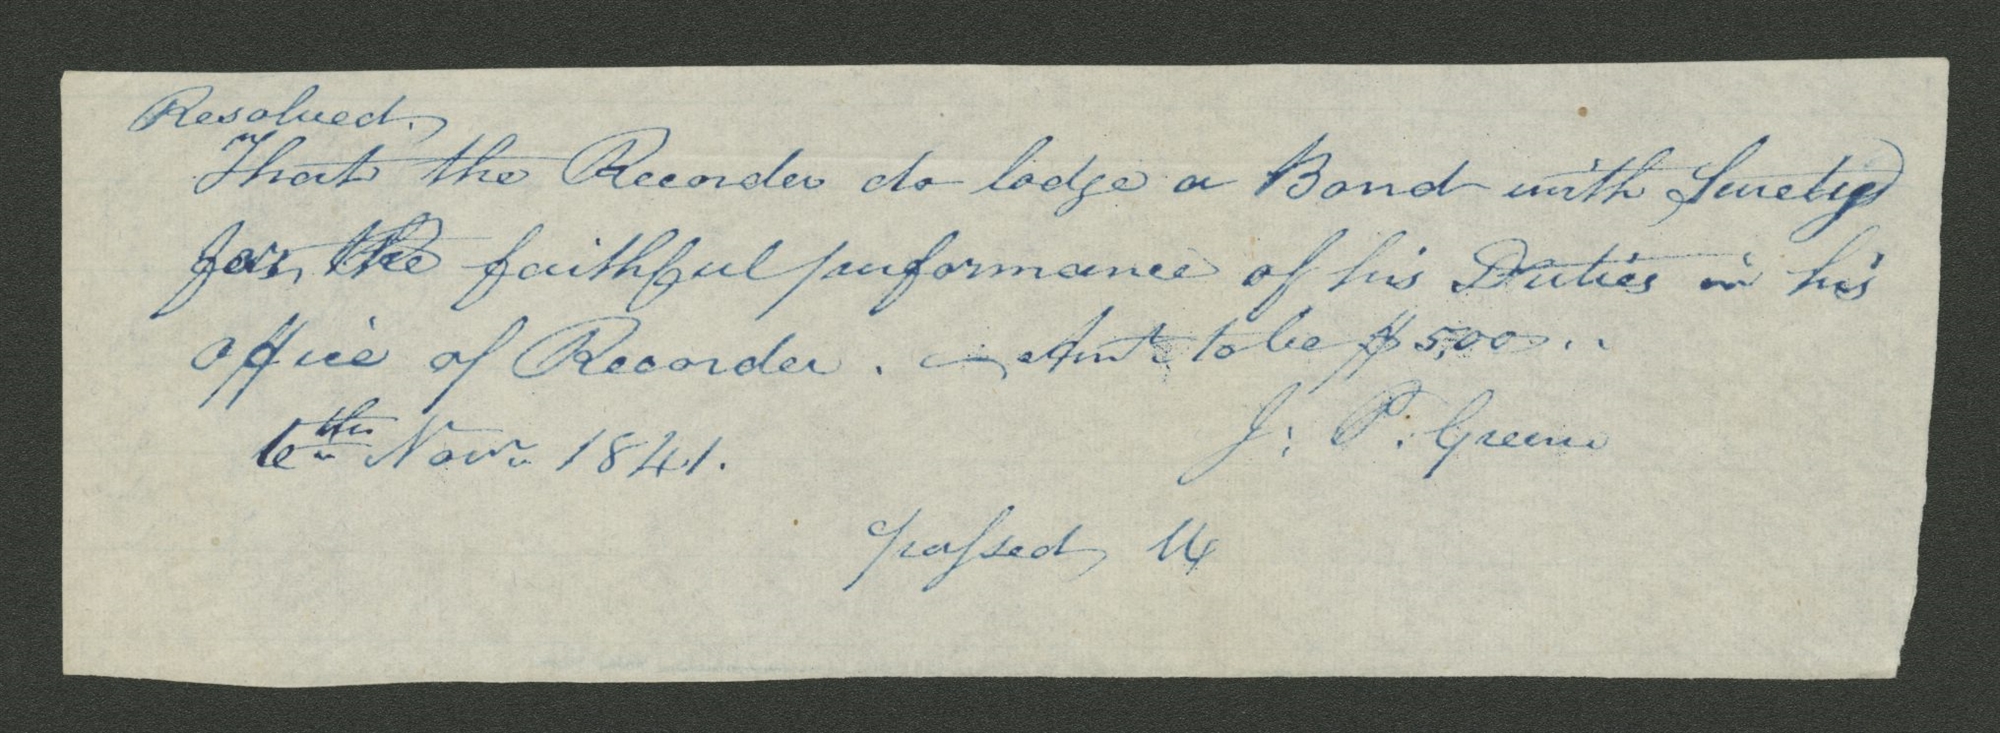 Resolved.
That the Recorder do lodge a Bond with Surety
for the faithful performance of his Duties in his
office of Recorder. — Amt. to be $500..
6th Novr. 1841. J. P. Greene
passed